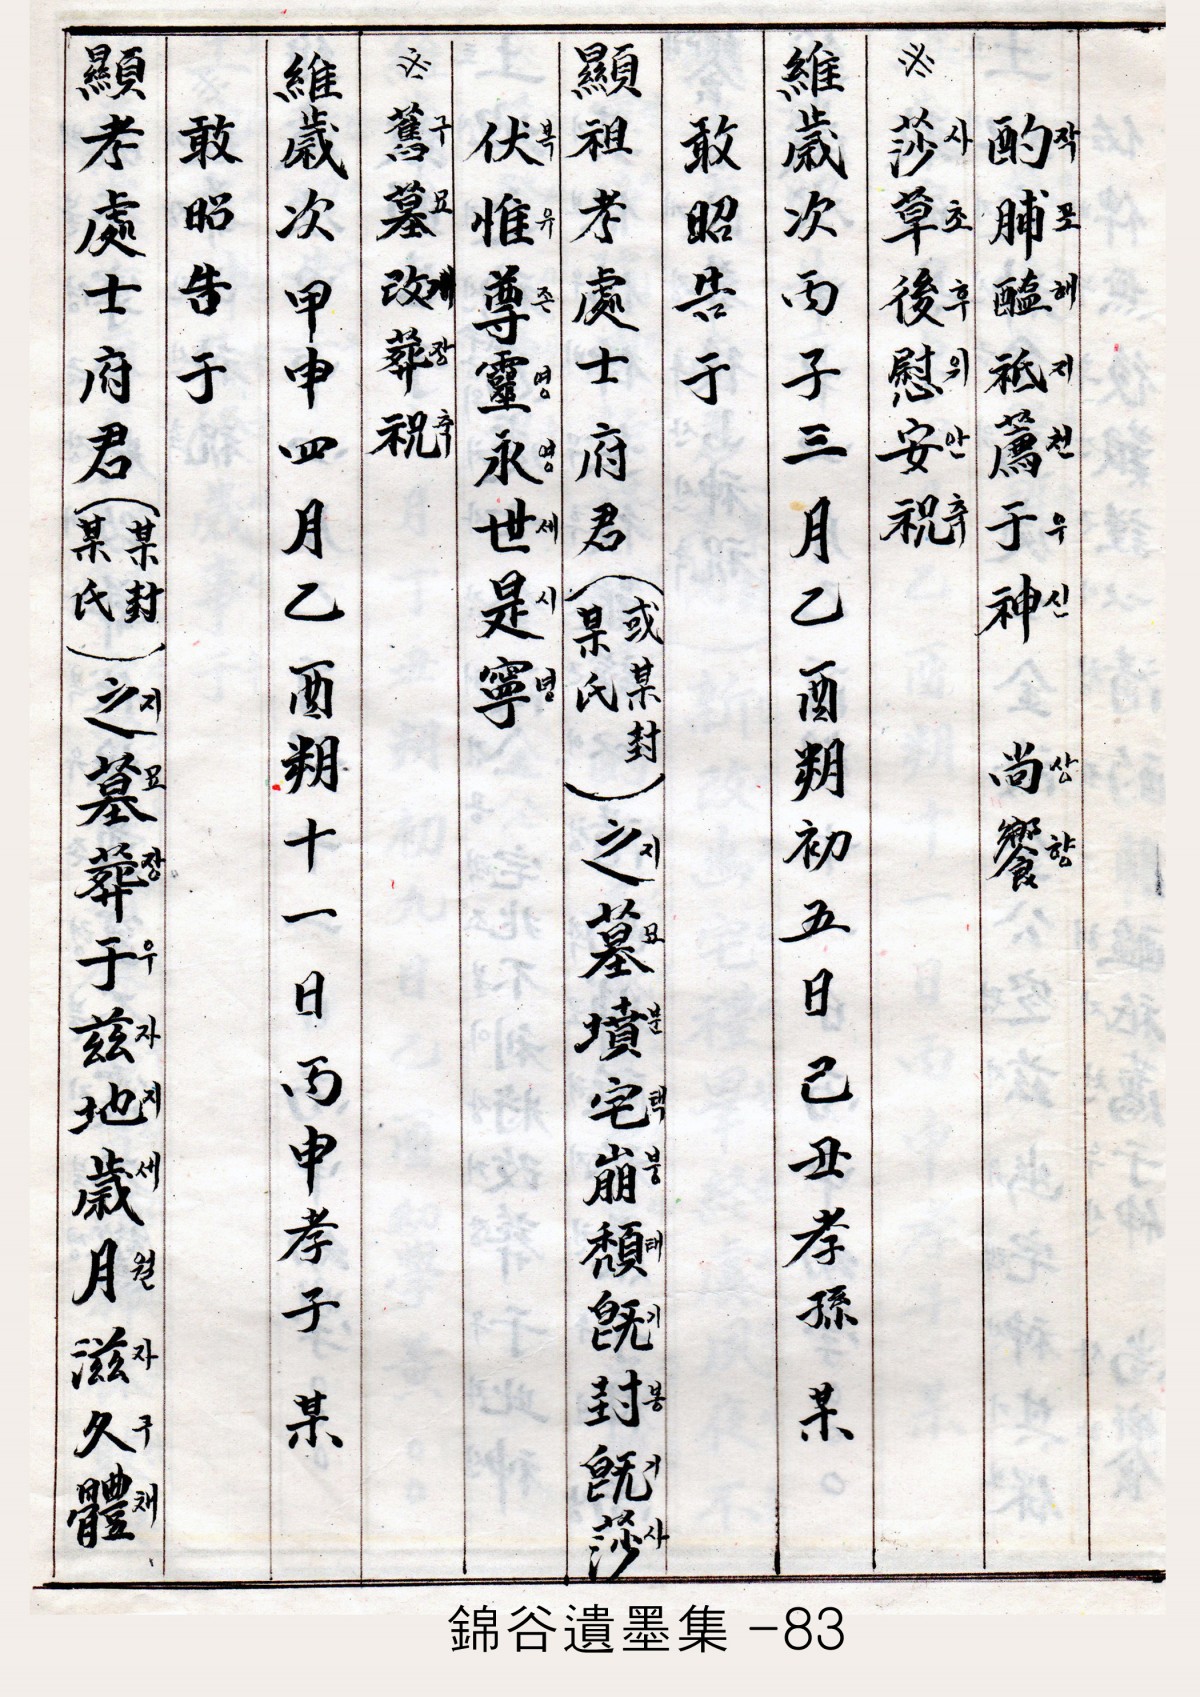 酌작脯포醢해祗지薦천于우神신 尚상饗향
※ 莎사草초後후慰위安안祝축
維歲次丙子三月乙酉朔初五日己丑孝孫 某
敢昭告于
顯祖考處士府君(或某封某氏)之지墓묘墳분宅택崩붕頹태旣기封봉旣기莎사
伏복惟유尊존靈영永영世세是시寧녕
※ 舊구墓묘改개葬장祝축
維歲次甲申四月乙酉朔十一日丙申孝子 某
敢昭告于
顯考處士府君(某封某氏)之지墓묘葬장于우茲자地지歲세月월滋자久구體체
錦谷遺墨集 -83